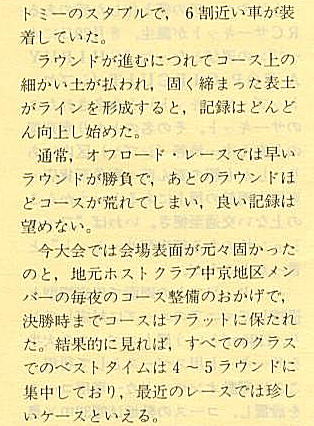 トミーのスタブルで，6割近い車が装
着していた。
　ラウンドが進むにつれてコース上の
細かい土が払われ，固く締まった表土
がラインを形成すると，記録はどんど
ん向上し始めた。
　通常，オフロード・レースでは早い
ラウンドが勝負で，あとのラウンドほ
どコースが荒れてしまい，良い記録は
望めない。
　今大会では会場表面が元々固かった
のと，地元ホストクラブ中京地区メン
バーの毎夜のコース整備のおかげで，
決勝時までコースはフラットに保たれ
た。結果的に見れば，すべてのクラス
でのベストタイムは4～5ラウンドに
集中しており，最近のレースでは珍し
いケースといえる。